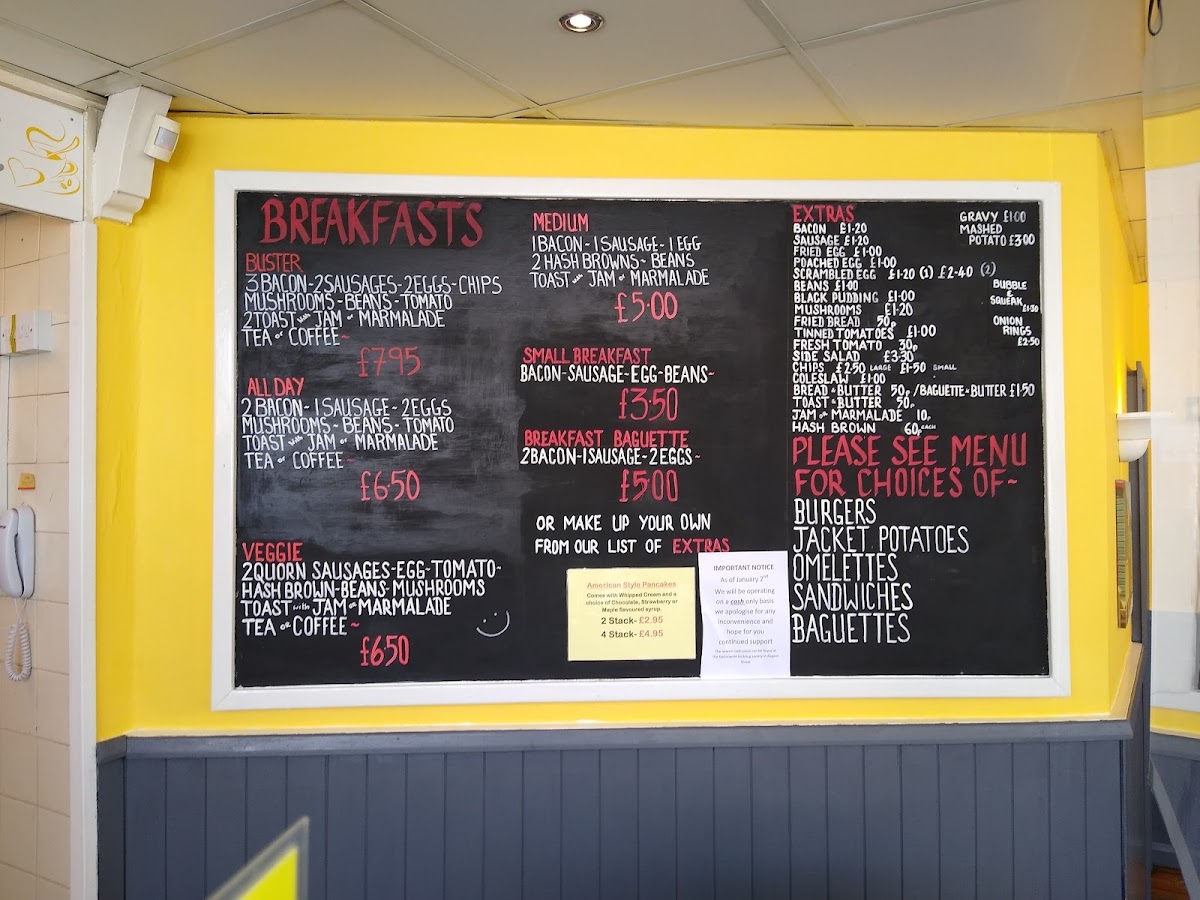 BREAKFASTS
BUSTER
3 BACON-2SAUSAGES-2EGGS-CHIPS
MUSHROOMS-BEANS-TOMATO
2TOAST with JAM or MARMALADE
TEA or COFFEE~
£7.95
ALL DAY
2 BACON-1 SAUSAGE-2EGGS
MUSHROOMS-BEANS-TOMATO
TOAST with JAM or MARMALADE
TEA or COFFEE~
£6.50
VEGGIE
2QUORN SAUSAGES-EGG-TOMATO-
HASH BROWN-BEANS-MUSHROOMS
TOAST with JAM or MARMALADE
TEA OR COFFEE~
£6.50
MEDIUM
1 BACON-1 SAUSAGE-1 EGG
2 HASH BROWNS-BEANS
TOAST with JAM or MARMALADE
£5.00
SMALL BREAKFAST
BACON-SAUSAGE-EGG-BEANS~
£3.50
BREAKFAST BAGUETTE
2BACON-1SAUSAGE-2EGGS~
£5.00
OR MAKE UP YOUR OWN
FROM OUR LIST OF EXTRAS
American Style Pancakes
Comes with Whipped Cream and a
choice of Chocolate, Strawberry or
Maple flavoured syrup.
2 Stack- £2.95
4 Stack- £4.95
IMPORTANT NOTICE
As of January 2nd
We will be operating
on a cash only basis
we apologise for any
inconvenience and
hope for you
continued support
EXTRAS
BACON £1.20
SAUSAGE £1.20
FRIED EGG £1.00
POACHED EGG £1.00
SCRAMBLED EGG £1.20 (1) £2.40 (2)
BEANS £1.00
BLACK PUDDING £1.00
MUSHROOMS £1.20
FRIED BREAD 50p
TINNED TOMATOES £1.00
FRESH TOMATO 30p
SIDE SALAD £3.30
CHIPS £2.50 LARGE £1.50 SMALL
COLESLAW £1.00
BREAD & BUTTER 50p / BAGUETTE & BUTTER £1.50
TOAST & BUTTER 50p
JAM or MARMALADE 10p
HASH BROWN 60p EACH
GRAVY £1.00
MASHED
POTATO £3.00
BUBBLE
&
SQUEAK
£1.50
ONION
RINGS
£2.50
PLEASE SEE MENU
FOR CHOICES OF~
BURGERS
JACKET POTATOES
OMELETTES
SANDWICHES
BAGUETTES